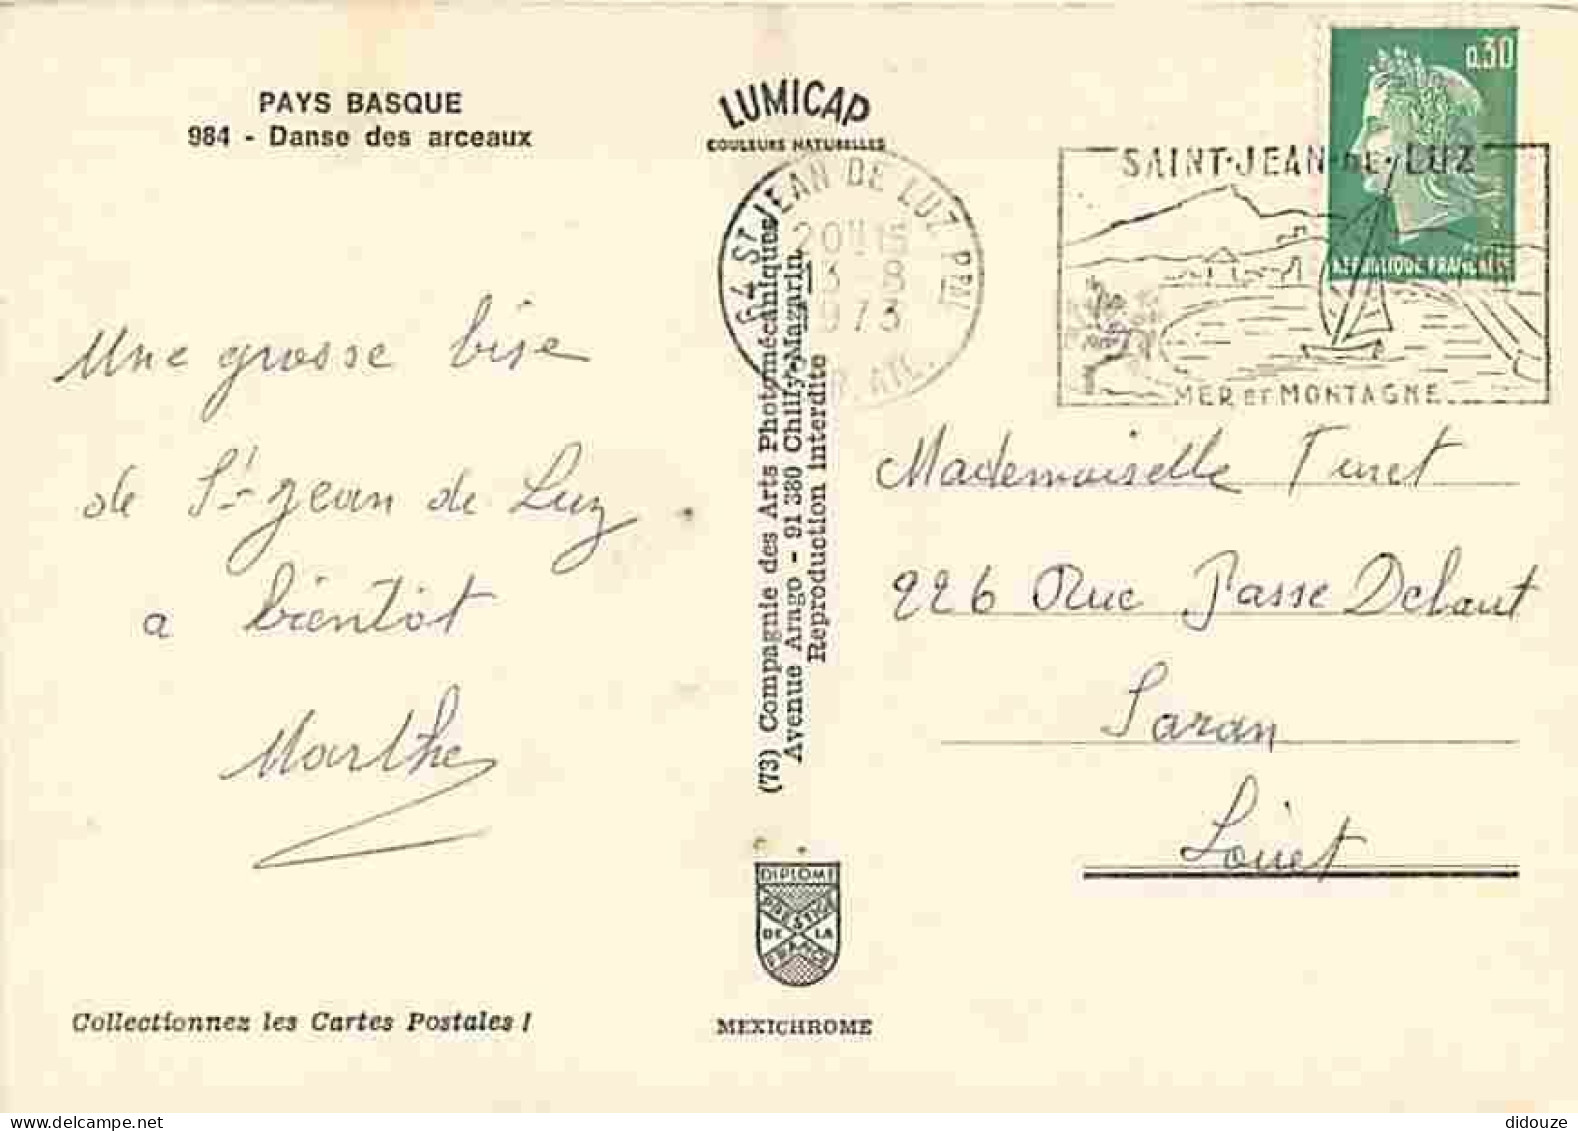 PAYS BASQUE
984 - Danse des arceaux
LUMICAP
COULEURS NATURELLES
0,30
REPUBLIQUE FRANÇAISE
64 ST JEAN DE LUZ PPAL
20H15
3-8
1973
SAINT-JEAN-DE-LUZ
MER ET MONTAGNE
Une grosse bise
de St-Jean de Luz
a bientôt
Marthe
(73) Compagnie des Arts Photomécaniques
Avenue Arago - 91 380 Chilly-Mazarin
Reproduction interdite
Mademoiselle
226 Rue Passe Debaut
Saran
Loiret
DIPLOME
PRESTIGE
DE LA
FRANCE
Collectionnez les Cartes Postales !
MEXICHROME
didouze